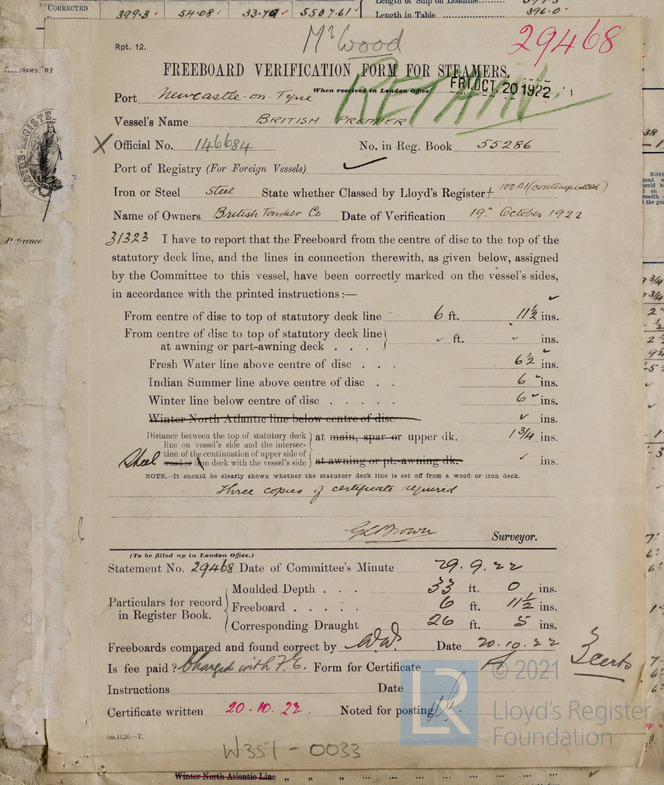 CORRECTED 399.3 54.08 33.79 5507.61
Length in Table 396.0
Rpt. 12.
Mr Wood
29468
FREEBOARD VERIFICATION FORM FOR STEAMERS.
RETAIN
When received in London Office
FRI. OCT. 20 1922
Port Newcastle-on-Tyne
Vessel's Name BRITISH PREMIER
X Official No. 146684 No. in Reg. Book 55286
Port of Registry (For Foreign Vessels)
Iron or Steel Steel State whether Classed by Lloyd's Register + 100A1 (contemplated)
Name of Owners British Tanker Co Date of Verification 19th October 1922
31323 I have to report that the Freeboard from the centre of disc to the top of the
statutory deck line, and the lines in connection therewith, as given below, assigned
by the Committee to this vessel, have been correctly marked on the vessel's sides,
in accordance with the printed instructions :—
From centre of disc to top of statutory deck line 6 ft. 11½ ins.
From centre of disc to top of statutory deck line
at awning or part-awning deck . . . ft. ins.
Fresh Water line above centre of disc . . . 6½ ins.
Indian Summer line above centre of disc . . 6 ins.
Winter line below centre of disc . . . . . 6 ins.
Winter North Atlantic line below centre of disc ins.
Distance between the top of statutory deck
line on vessel's side and the intersec-
tion of the continuation of upper side of
wood or iron deck with the vessel's side
Steel
at main, spar or upper dk. 1¾ ins.
at awning or pt.-awning dk. ins.
NOTE.—It should be clearly shown whether the statutory deck line is set off from a wood or iron deck.
Three copies of certificate required
Surveyor.
(To be filled up in London Office.)
Statement No. 29468 Date of Committee's Minute 29.9.22
Particulars for record
in Register Book.
Moulded Depth . . . . 33 ft. 0 ins.
Freeboard . . . . 6 ft. 11½ ins.
Corresponding Draught 26 ft. 5 ins.
Freeboards compared and found correct by Date 20.10.22
3 certs
Is fee paid? Charged with F.E. Form for Certificate
Instructions Date
Certificate written 20.10.22 Noted for posting
W351-0033
© 2021
LR
Lloyd's Register
Foundation
Winter North Atlantic Line